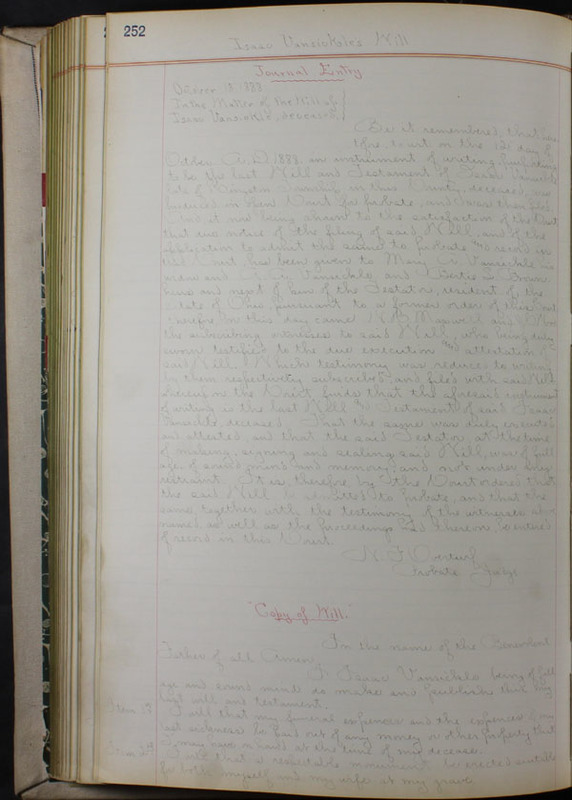 252
Isaac Vansickle's Will
Journal Entry
October 18 1888
In the Matter of the Will of
Isaac Vansickle, deceased
Be it remembered, that
court on the 12 day of
October A.D. 1888 an instrument of writing
to be the last Will and Testament of Isaac Vansickle
late of Township in this County, deceased, was
produced in Open Court for probate, and was then filed
And it now being shown to the satisfaction of the Court
that due notice of the filing of said Will, and of the
application to admit the same to probate and record in
this Court has been given to Mary A Vansickle
and Vansickle and Bertie Brown
heirs and next of kin of the Testator, resident of the
State of Ohio, pursuant to a former order of this Court
Therefore on this day came Maxwell and
the subscribing witnesses to said Will, who being duly
sworn testified to the due execution and attestation of
said Will. Which testimony was reduced to writing
by them respectively subscribed and filed with said Will
whereupon the Court finds that the aforesaid instrument
of writing is the last Will and Testament of said Isaac
Vansickle, deceased. That the same was duly executed
and attested, and that the said Testator, at the time
of making, signing and sealing said Will, was of full
age, of sound mind and memory, and not under any
restraint. It is therefore, by the Court ordered that
the said Will be admitted to probate, and that the
same together with the testimony of the witnesses above
named as well as the proceedings had thereon, be entered
of record in this Court
Probate Judge
"Copy of Will."
In the name of the Benevolent
Father of all Amen,
I Isaac Vansickle being of full
age and sound mind do make and publish this my
last will and testament.
Item 1st I will that my funeral expenses and the expenses of my
last sickness be paid out of any money or other property that
I may have in hand at the time of my decease.
Item 2nd I will that a respectable monument be erected suitable
for both myself and my wife at my grave